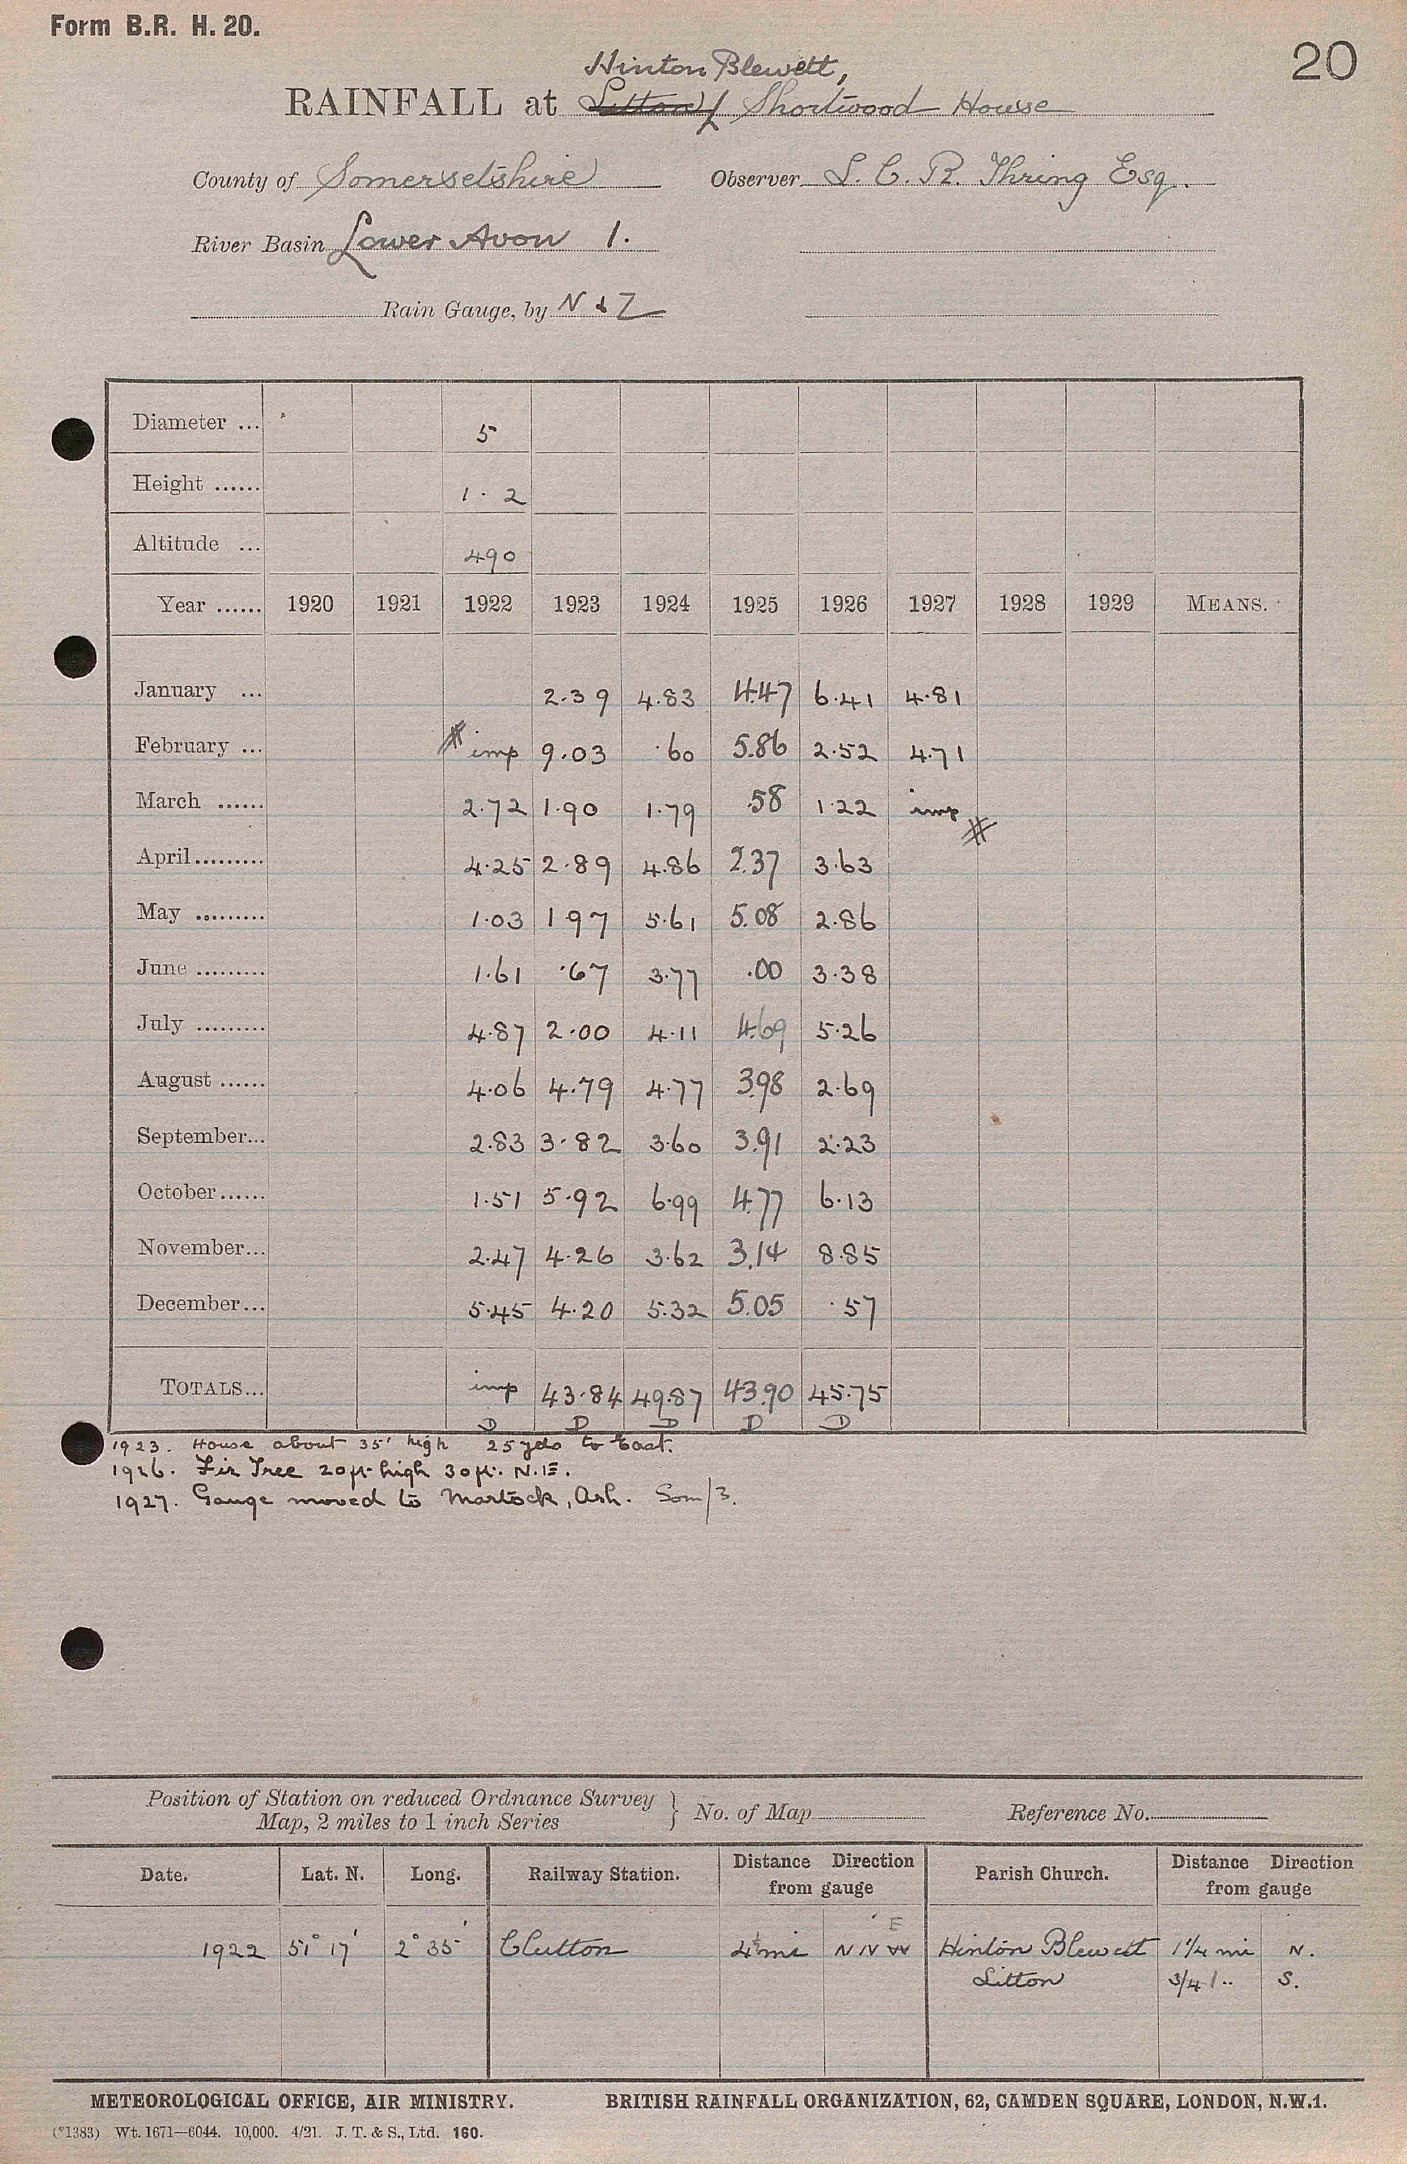 Form B.R. H. 20.
20
Hinton Blewett,
RAINFALL at Litton, Shortwood House
County of Somersetshire Observer L. C. R. Thring Esq.
River Basin Lower Avon 1.
Rain Gauge, by N & Z
Diameter ... 5
Height ...... 1 . 2
Altitude ... 490
Year ...... 1920 1921 1922 1923 1924 1925 1926 1927 1928 1929 MEANS.
January ... 2.39 4.83 4.47 6.41 4.81
February ... # imp 9.03 .60 5.86 2.52 4.71
March ...... 2.72 1.90 1.79 .58 1.22 imp #
April......... 4.25 2.89 4.86 2.37 3.63
May ......... 1.03 1 97 5.61 5.08 2.86
June ......... 1.61 .67 3.77 .00 3.38
July ......... 4.87 2.00 4.11 4.69 5.26
August ...... 4.06 4.79 4.77 3.98 2.69
September... 2.83 3.82 3.60 3.91 2.23
October...... 1.51 5.92 6.99 4.77 6.13
November... 2.47 4.26 3.62 3.14 8.85
December... 5.45 4.20 5.32 5.05 .57
TOTALS... imp 43.84 49.87 43.90 45.75
D D D D D
1923. House about 35' high 25 yds to East.
1926. Fir Tree 20 ft. high 30 ft. N.E.
1927. Gauge moved to Martock, Ash. Som/3.
Position of Station on reduced Ordnance Survey
Map, 2 miles to 1 inch Series } No. of Map Reference No.
Date. Lat. N. Long. Railway Station. Distance Direction from gauge Parish Church. Distance Direction from gauge
E
1922 51° 17' 2° 35' Clutton 4½ mi N N W Hinton Blewett 1 1/4 mi N.
Litton 3/4 " S.
METEOROLOGICAL OFFICE, AIR MINISTRY. BRITISH RAINFALL ORGANIZATION, 62, CAMDEN SQUARE, LONDON, N.W.1.
(*1383) Wt. 1671—6044. 10,000. 4/21. J. T. & S., Ltd. 160.